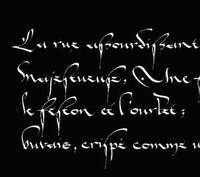 La rue assourdissant
Majestueuse, Une
le feston et l'ourlet;
buvais, crispé comme u